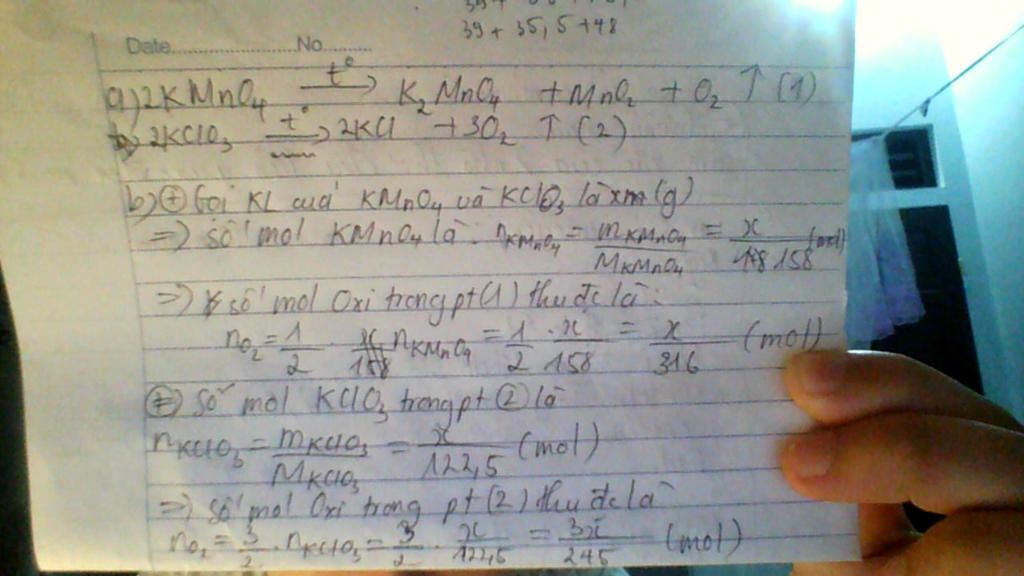 39 + 35,5 + 48
Date No
a) 2KMnO4 t° → K2MnO4 + MnO2 + O2 ↑ (1)
b) 2KClO3 t° → 2KCl + 3O2 ↑ (2)
b) + Gọi KL của KMnO4 và KClO3 là x (g)
=> số mol KMnO4 là: nKMnO4 = mKMnO4 / MKMnO4 = x / 158 (mol)
=> số mol Oxi trong pt (1) thu đc là:
nO2 = 1/2 . nKMnO4 = 1/2 . x/158 = x/316 (mol)
+ Số mol KClO3 trong pt (2) là
nKClO3 = mKClO3 / MKClO3 = x / 122,5 (mol)
=> số mol Oxi trong pt (2) thu đc là
nO2 = 3/2 . nKClO3 = 3/2 . x/122,5 = 3x/245 (mol)